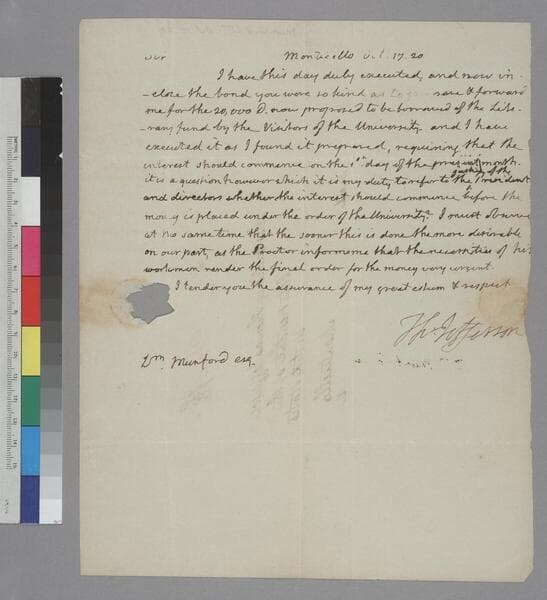 Monticello Oct. 17. 20
I have this day duly executed, and now in-
-close the bond you were so kind as to & forward
me for the 20,000 D. now proposed to be borrowed of the Lite-
-rary fund by the Visitors of the University. and I have
executed it as I found it prepared, requiring that the
interest should commence on the 1st day of the present month.
it is a question however which it is my duty to refer to the justice of the President
and directors whether the interest should commence before the
money is placed under the order of the University? I must observe
at same time that the sooner this is done the more desirable
on our part, as the Proctor informs me that the necessities of his
workmen render the final order for the money very urgent.
I tender you the assurance of my great esteem & respect
Th: Jefferson
Wm Munford esq.